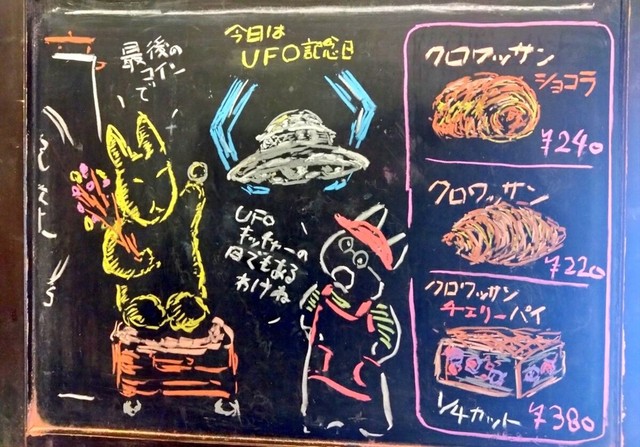 最後の
コイン
で
今日は
UFO記念日
UFO
キャッチャーの
日でもある
わけね
クロワッサン
ショコラ
¥240
クロワッサン
¥220
クロワッサン
チェリーパイ
1/4カット
¥380